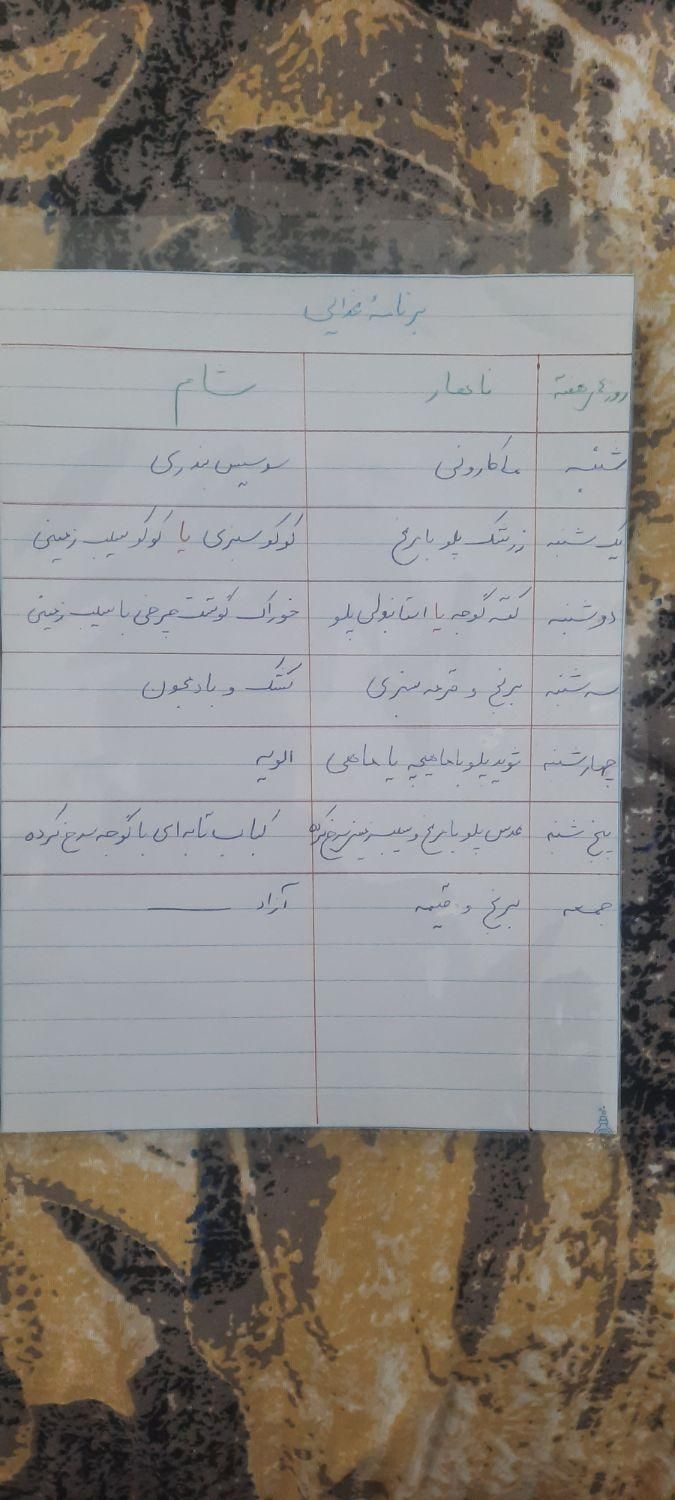 برنامهٔ غذایی
روزهای هفته ناهار شام
شنبه ماکارونی سوسیس بندری
یک شنبه زرشک پلو با مرغ کوکو سبزی یا کوکو سیب زمینی
دوشنبه کته گوجه یا استانبولی پلو خوراک گوشت چرخی با سیب زمینی
سه شنبه برنج و قرمه سبزی کشک و بادمجون
چهارشنبه شوید پلو با ماهیچه یا ماهی الویه
پنج شنبه عدس پلو با مرغ و سیب زمینی سرخ کرده کباب تابه ای با گوجه سرخ کرده
جمعه برنج و قیمه آزاد